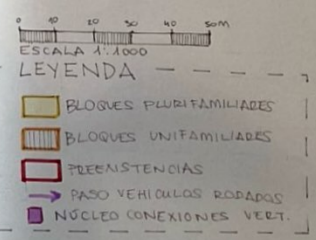 0 10 20 30 40 50m
ESCALA 1:1000
LEYENDA
BLOQUES PLURIFAMILIARES
BLOQUES UNIFAMILIARES
PREENSTENCIAS
PASO VEHICULOS RODADOS
NÚCLEO CONEXIONES VERT.